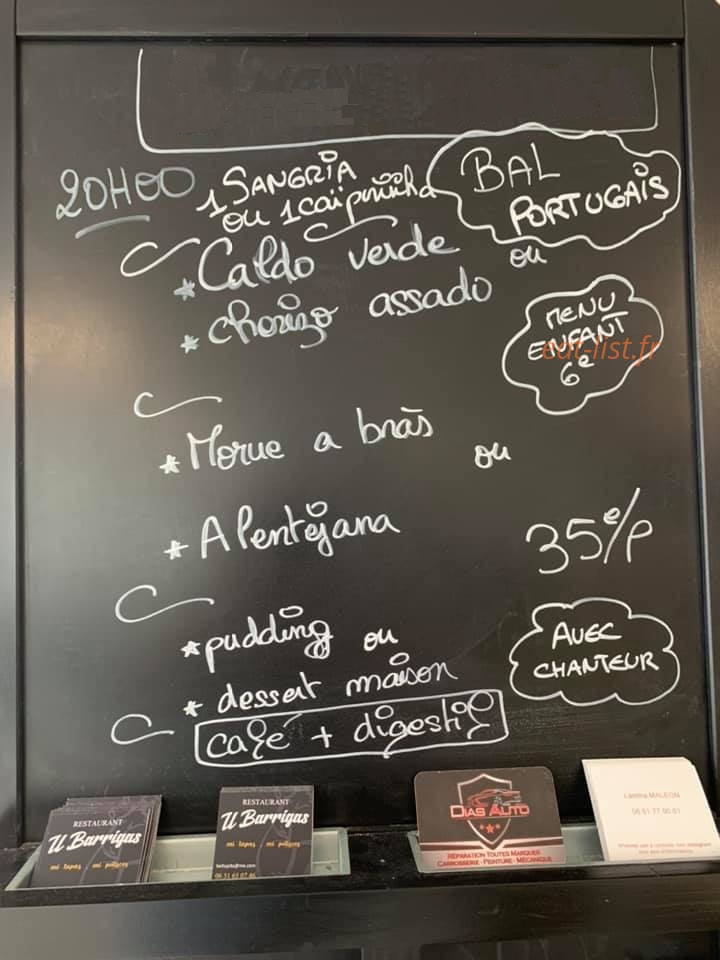 20H00
1 SANGRIA
ou 1 caïpirinha
BAL
PORTUGAIS
* Caldo verde ou
* chorizo assado
MENU
ENFANT
6e
eat-list.fr
* Morue a bràs ou
* Alentejana
35e/p
* pudding ou
* dessert maison
AVEC
CHANTEUR
café + digestif
RESTAURANT
U Barrigas
mi tapas mi potigas
RESTAURANT
U Barrigas
DIAS AUTO
RÉPARATION TOUTES MARQUES
CARROSSERIE - PEINTURE - MÉCANIQUE
MALEON
06 51 77 90 51